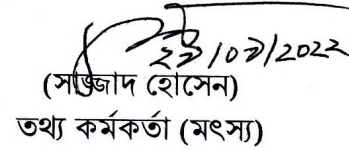 ২৯/০৯/2022
(সাজ্জাদ হোসেন)
তথ্য কর্মকর্তা (মৎস্য)